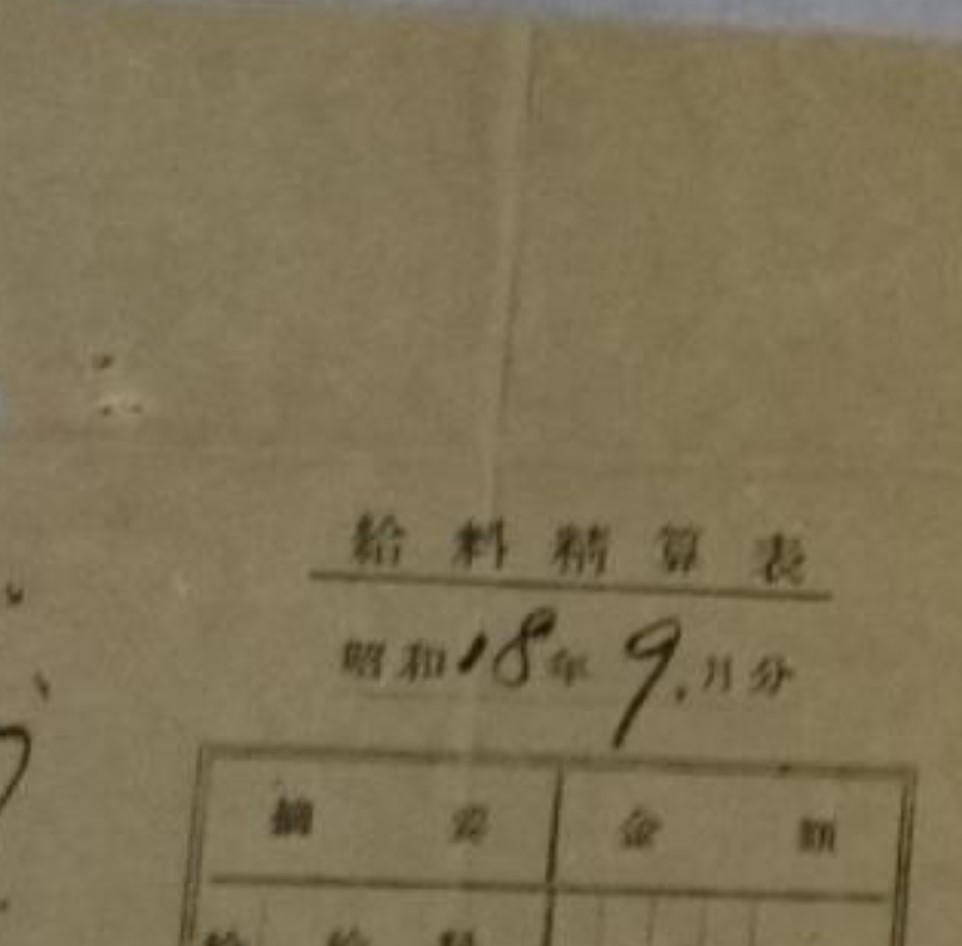 給料精算表
昭和18年9.月分
摘要 金額